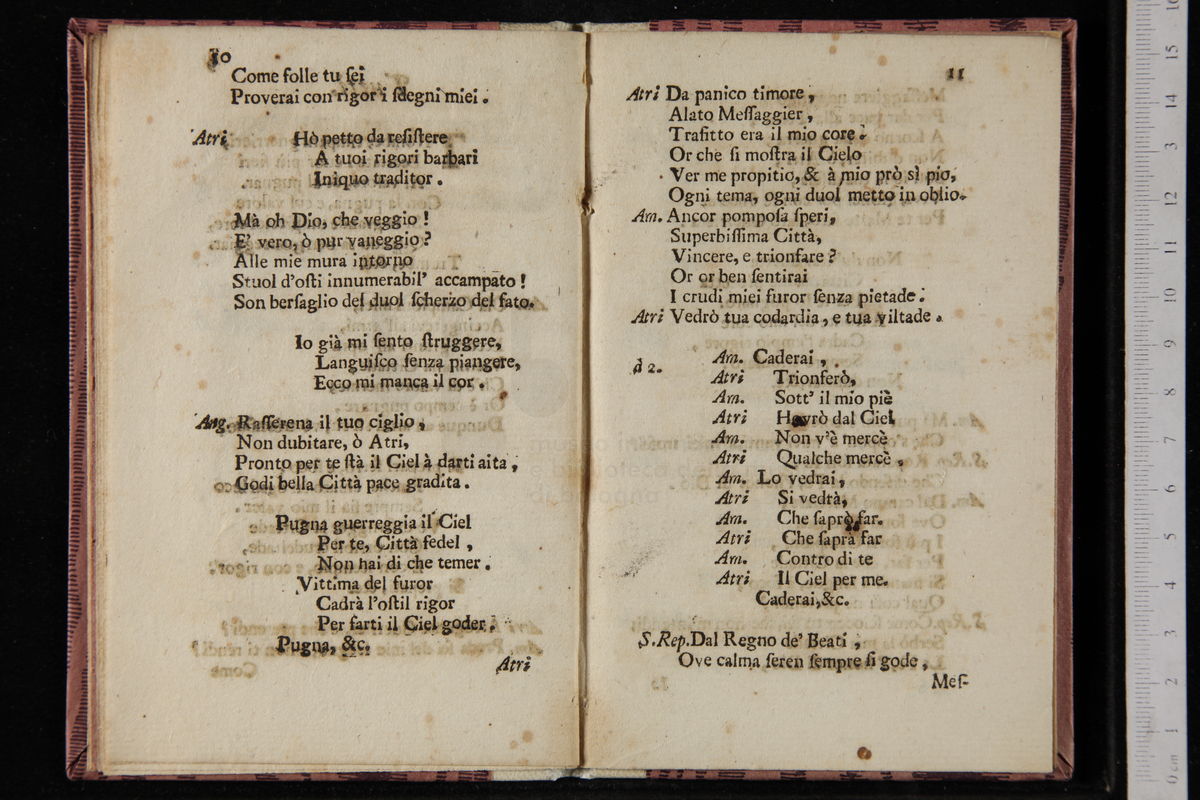 10
Come folle tu ſei
Proverai con rigor i ſdegni miei.
Atri Hò petto da reſiſtere
A tuoi rigori barbari
Iniquo traditor.
Mà oh Dio, che veggio!
E' vero, ò pur vaneggio?
Alle mie mura intorno
Stuol d'oſti innumerabil' accampato!
Son berſaglio del duol ſcherzo del fato.
Io già mi ſento ſtruggere,
Languiſco ſenza piangere,
Ecco mi manca il cor.
Ang. Raſſerena il tuo ciglio,
Non dubitare, ò Atri,
Pronto per te ſtà il Ciel à darti aita,
Godi bella Città pace gradita.
Pugna guerreggia il Ciel
Per te, Città fedel,
Non hai di che temer.
Vittima del furor
Cadrà l'oſtil rigor
Per farti il Ciel goder.
Pugna, &c.
Atri
11
Atri Da panico timore,
Alato Meſſaggier,
Trafitto era il mio core.
Or che ſi moſtra il Cielo
Ver me propitio, & à mio prò sì pio,
Ogni tema, ogni duol metto in oblio.
Am. Ancor pompoſa ſperi,
Superbiſſima Città,
Vincere, e trionfare?
Or or ben ſentirai
I crudi miei furor ſenza pietade.
Atri Vedrò tua codardia, e tua viltade.
à 2. Am. Caderai,
Atri Trionferò,
Am. Sott' il mio piè
Atri Havrò dal Ciel
Am. Non v'è mercè
Atri Qualche mercè,
Am. Lo vedrai,
Atri Si vedrà,
Am. Che ſaprò far.
Atri Che ſaprà far
Am. Contro di te
Atri Il Ciel per me.
Caderai, &c.
S. Rep. Dal Regno de' Beati,
Ove calma ſeren ſempre ſi gode,
Meſ-